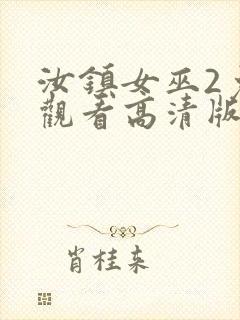 汝鎮女巫2
觀看高清版
肖桂来